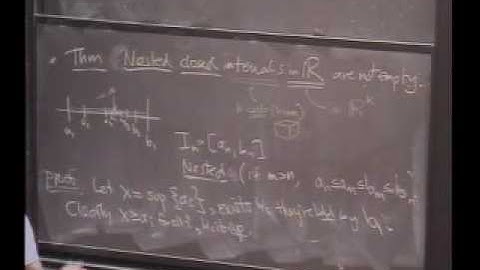 • Thm Nested closed intervals in ℝ are not empty.
k-cells (boxes) ℝᵏ
a₁ a₂ b₂ b₁
Iₙ = [aₙ, bₙ]
Nested = (if m>n, aₙ≤aₘ≤bₘ≤bₙ)
proof. Let x = sup {aᵢ}, exists b/c they're bdd by b₁.
Clearly x≥aᵢ